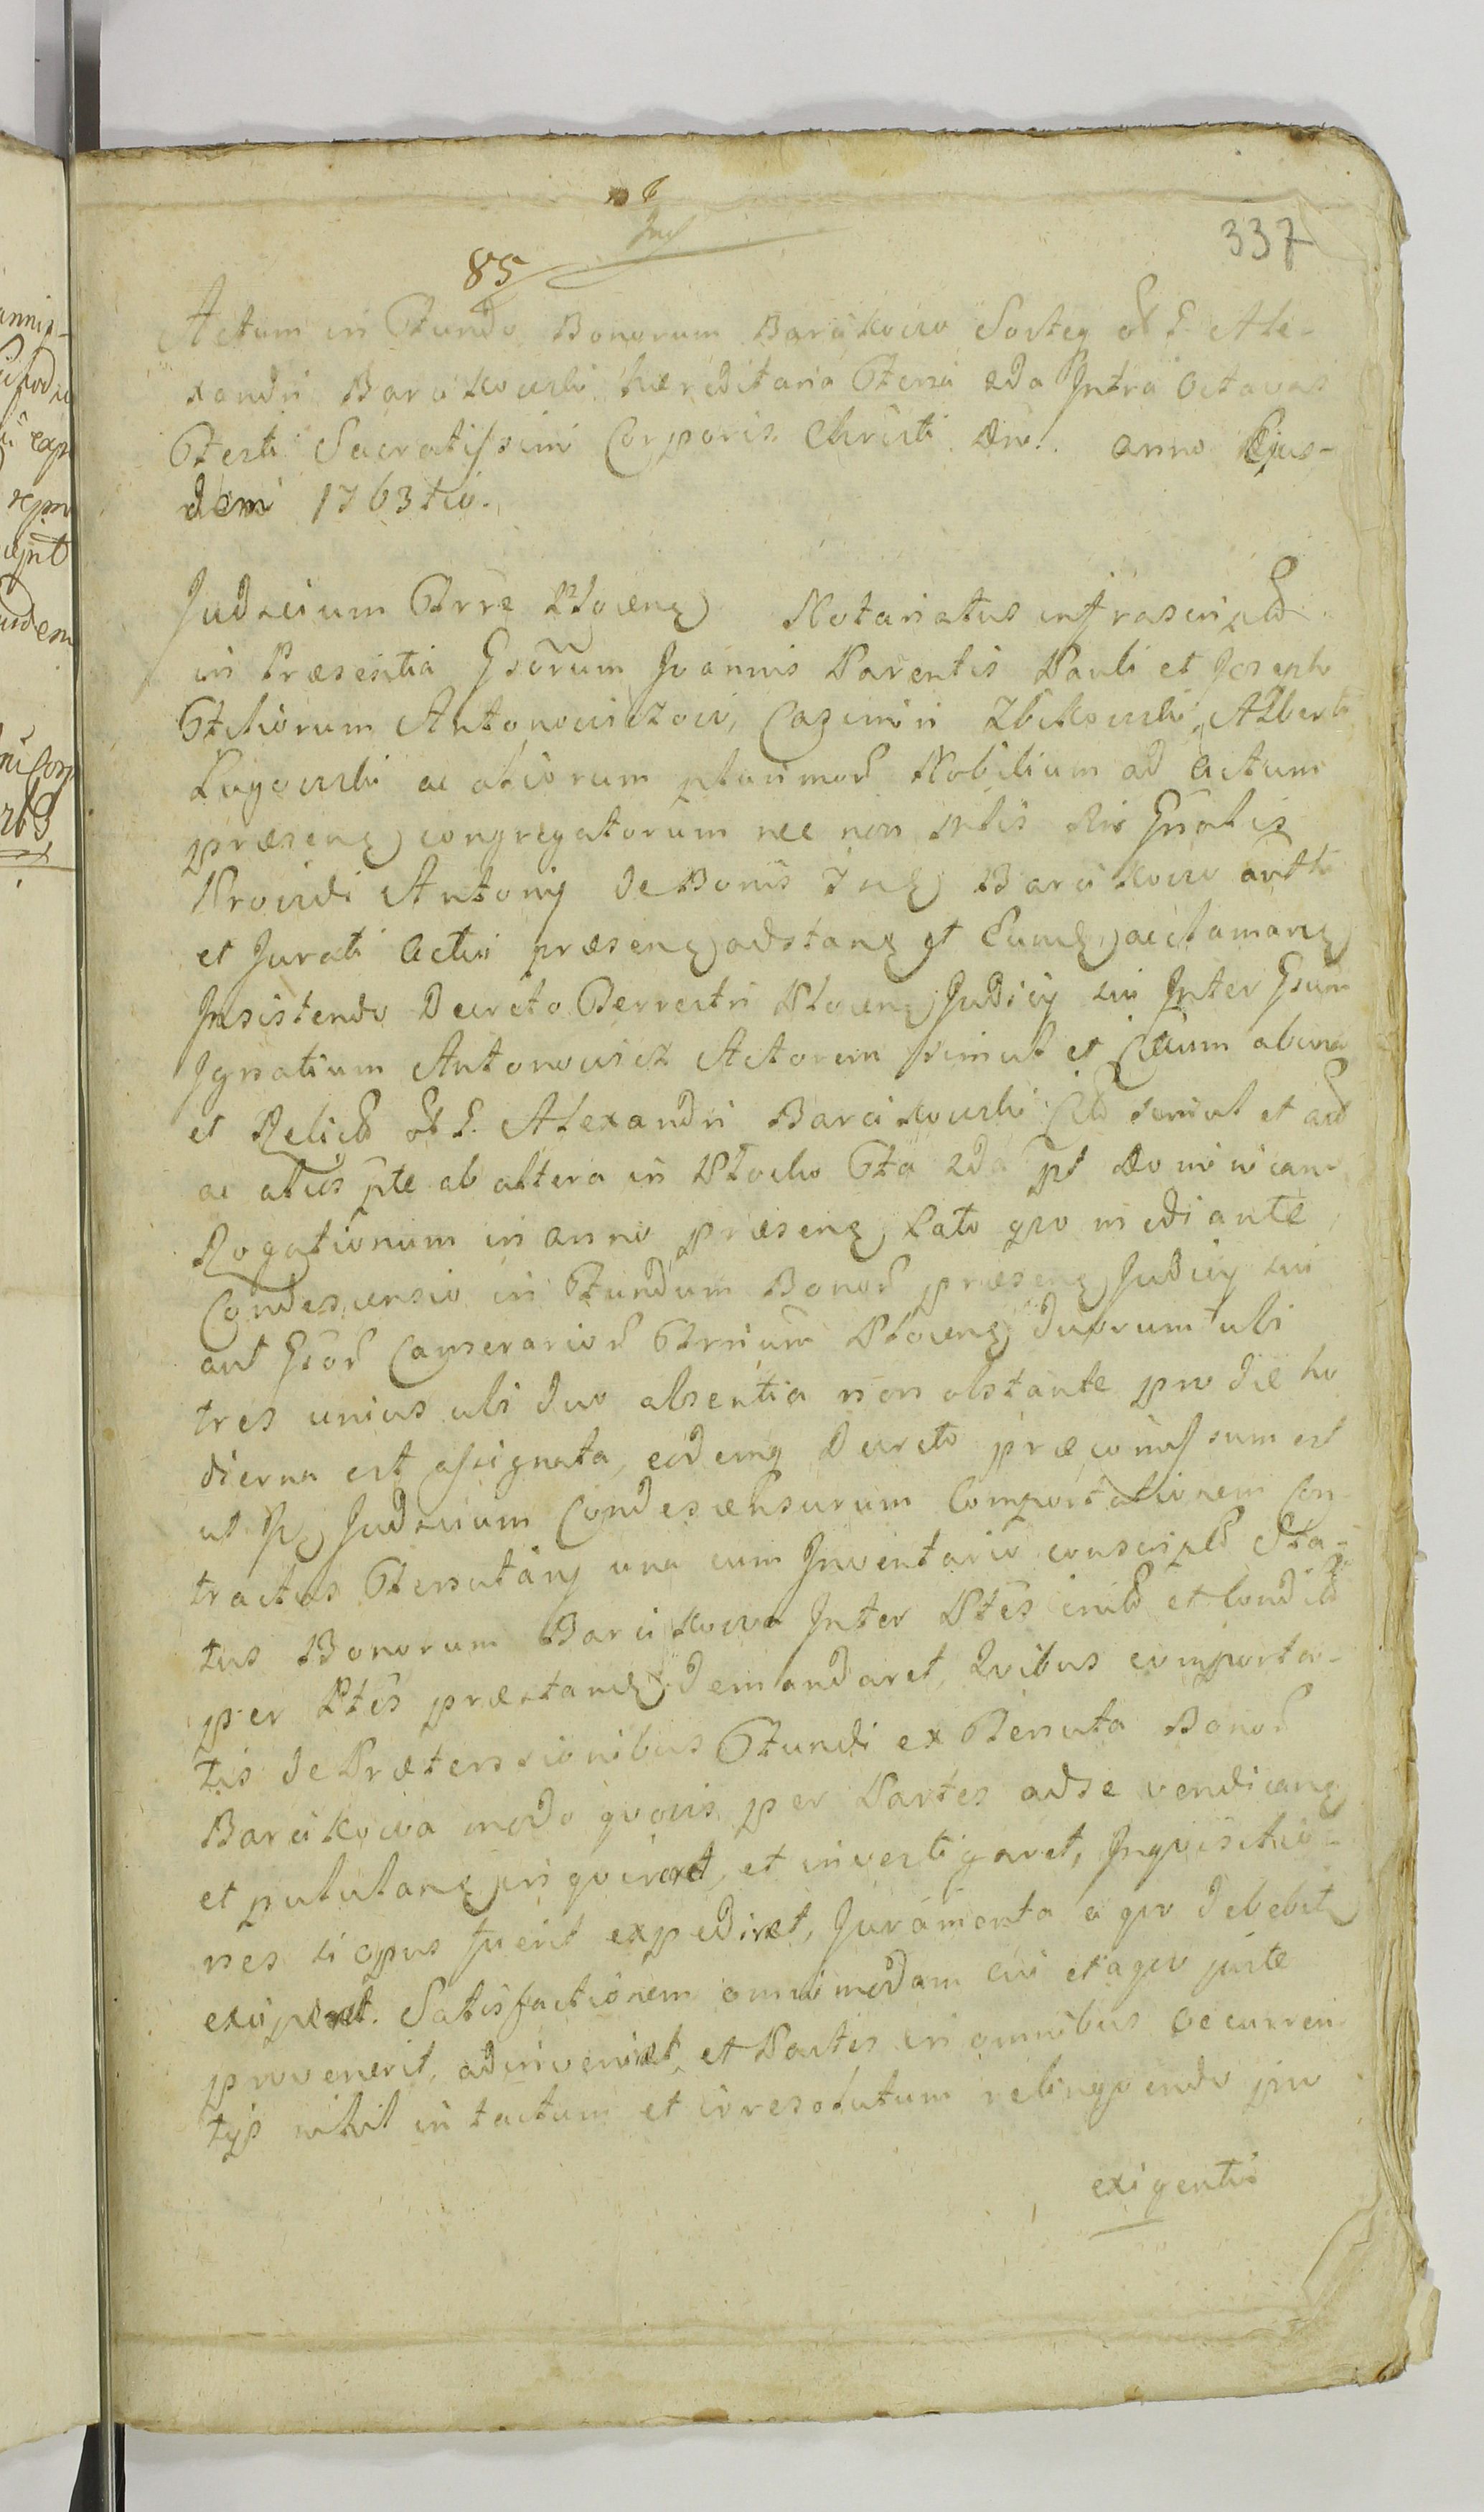 337
85
Actum in Fundo Bonorum Barcikowo Sorteq olim G. Ale-
xandri Barcikowski hæreditaria Feria 2da Intra Octavas
Festi Sacratissimi Corporis Christi Dni. anno Ejus-
dem 1763tio.
Judicium Trre Plocens Notariatus infrascript
in Præsentia Gsorum Joannis Parentis Pauli et Josephi
Filiorum Antonowiczow, Casimiri Zbikowski, Alberti
Lugowski ac aliorum plurimor Nobilium ad Actum
præsens congregatorum nec non Mlis Rni Gnalis
Providi Antonij de Bonis Barcikowo
et Jurati Actui præsens adstans et acclamans
Insistendo Decreto Terrestri Plocens Judicij sui Inter Gsum
Ignatium Antonowicz Actorem simul et Cittum ab una
et Relict olim G. Alexandri Barcikowski simul et
ac aliis pte ab altera in Plocko Fta 2da pt Dominicam
Rogationum in anno præsens Lato quo mediante
Condescensio in Fundum Bonor præsens Judicij sui
aut Gsor Camerarior Trrium Plocens duorum ubi
tres unius ubi duo absentia non obstante pro die ho
dierna est assignata, eodemq Decreto præcomissum est
ut Judicium Condescensurum Comportationem Con-
tractus Tenutarij una cum Inventario conscript Sta-
tus Bonorum Barcikowa Inter Ptes init et Condict
per Ptes præstand demandaret, Quibus comporta-
tis de Prætensionibus Fundi ex Tenuta Bonor
Barcikowa modo quovis per Partes ad se vendicans
et pululans inquireret, et investigaret, Inquisitio-
nes si opus fuerit expediret, Juramenta a quo debebit
exciperet. Satisfactionem omnimodam cui et a quo juste
provenerit, adinveniret et Partes in omnibus occurren-
tijs nihil intactum et irresolutum relinquendo pro
exigentia